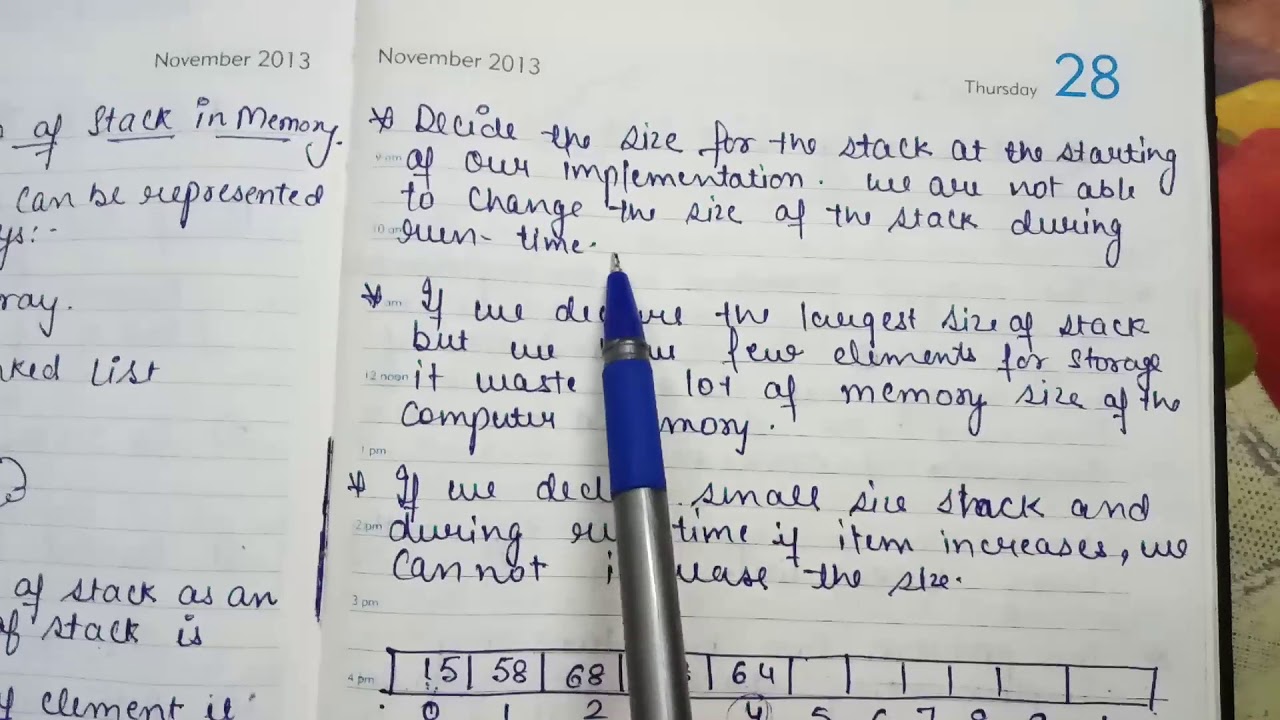 November 2013
of Stack in Memory.
can be represented
ys:-
ray.
ked List
of stack as an
of stack is
element is
November 2013
Thursday 28
Decide the size for the stack at the starting
9 am of our implementation. we are not able
to change the size of the stack during
10 am run-time.
am If we the largest size of stack
but we few elements for storage
12 noon it waste lot of memory size of the
computer mory.
1 pm
If we small size stack and
2 pm during time if item increases, we
cannot the size.
3 pm
4 pm 15 58 68 64
0 1 2 4 5 6 7 8 9